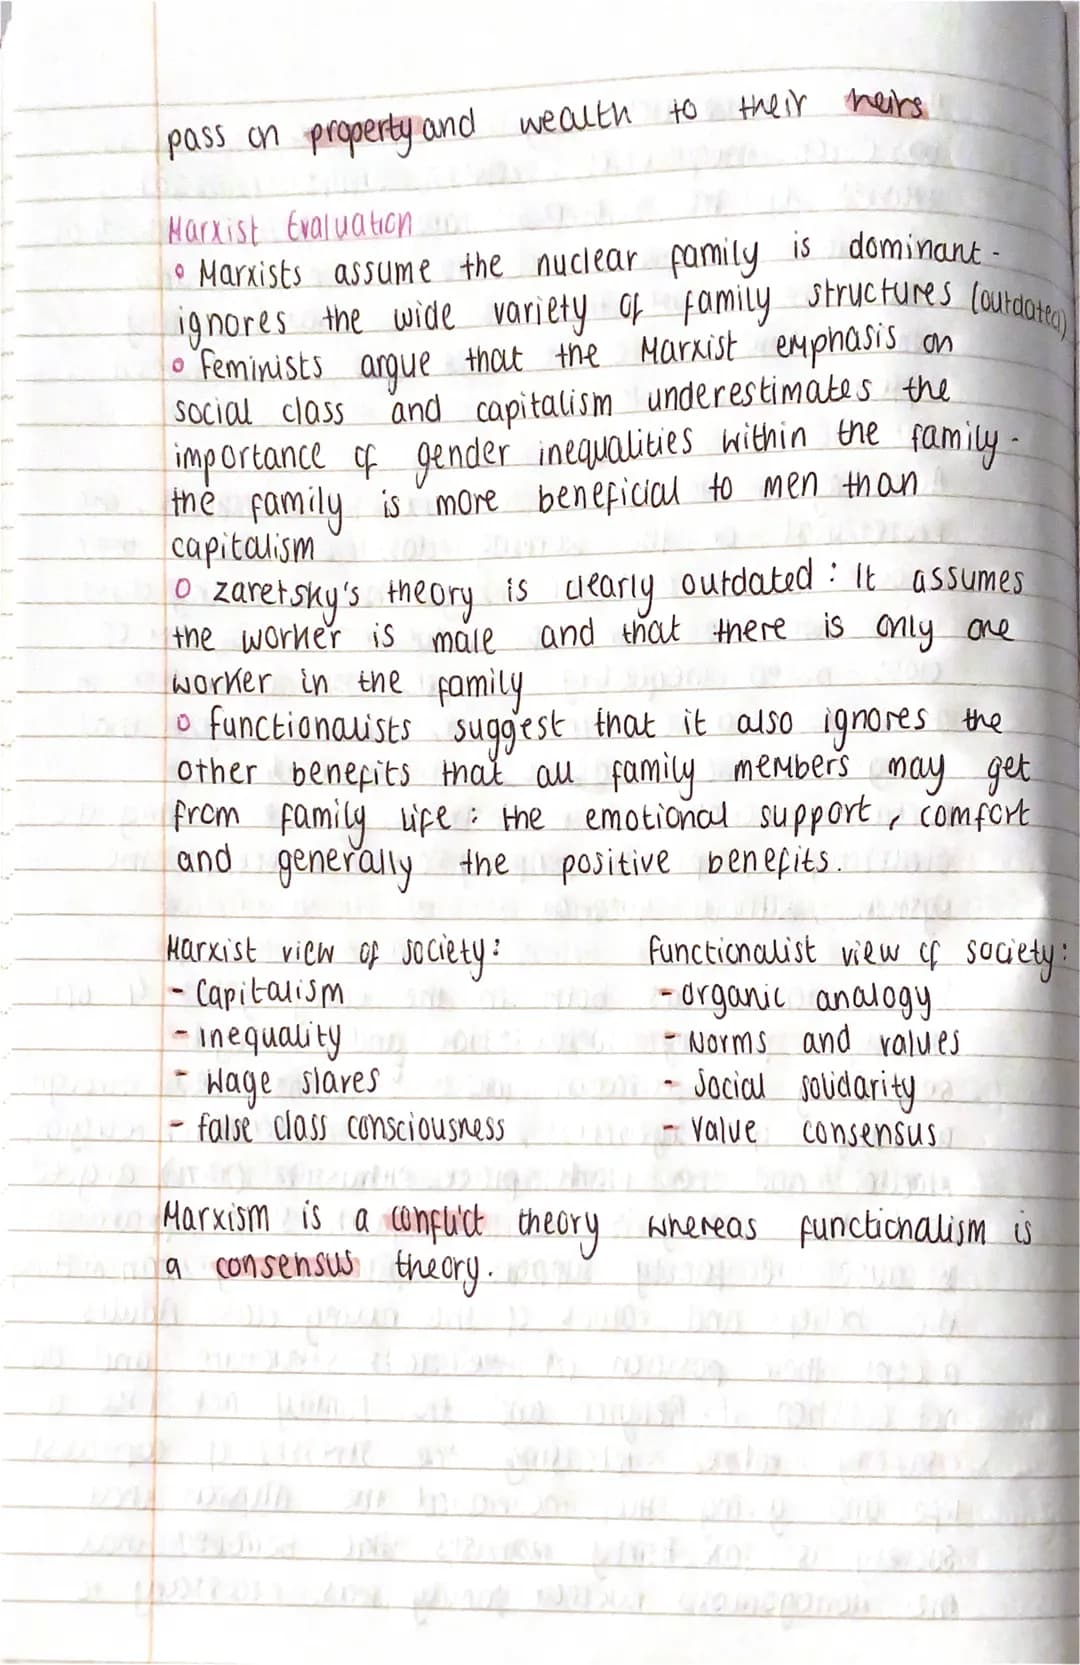 pass on property and wealth to their heirs
Marxist Evaluation
Marxists assume the nuclear family is dominant -
ignores the wide variety of family structures (outdated)
Feminists argue that the Marxist emphasis on
social class and capitalism underestimates the
importance of gender inequalities within the family -
the family is more beneficial to men than
capitalism
Zaretsky's theory is clearly outdated : It assumes
the worker is male and that there is only one
worker in the family
Functionalists suggest that it also ignores the
other benefits that all family members may get
from family life : the emotional support, comfort
and generally the positive benefits.
Marxist view of society: Functionalist view of society:
- Capitalism - organic analogy
- inequality - Norms and values
- Wage slaves - Social solidarity
- false class consciousness - Value consensus
Marxism is a conflict theory whereas functionalism is
a consensus theory.